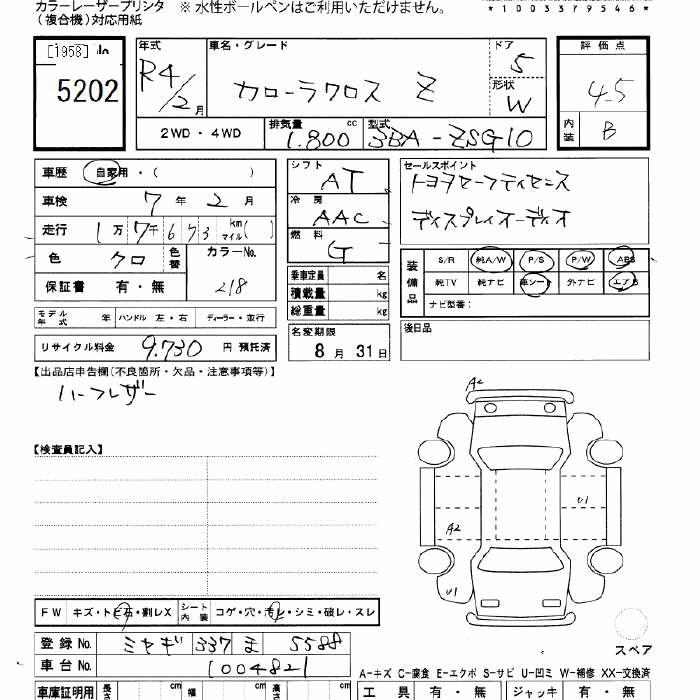 カラーレーザープリンタ ※ 水性ボールペンはご利用いただけません。
(複合機)対応用紙 *1003379546*
[1958]
5202
年式 車名・グレード ドア 評価点
R4/2月 カローラクロス Z 5 4.5
形状 W
2WD・4WD 排気量 1.800 cc 型式 3BA-ZSG10 内装 B
車歴 自家用・( ) シフト AT セールスポイント
車検 7年 2月 冷房 AAC トヨタセーフティセンス
走行 1万7千673 km マイル( ) 燃料 G ディスプレイオーディオ
色 クロ 色替 カラーNo. 218
保証書 有・無
乗車定員 名
積載量 kg
総重量 kg
装備品 S/R 純A/W P/S P/W ABS
純TV 純ナビ 革シート 外ナビ エアB
ナビ型番:
モデル年式 年 ハンドル 左・右 ディーラー・並行
名変期限 8月31日
後日品
リサイクル料金 9.730 円 預託済
【出品店申告欄(不良箇所・欠品・注意事項等)】
ハーフレザー
A2
【検査員記入】
U1
A2
U1
FW キズ・トビ石・割レX シート内装 コゲ・穴・汚レ・シミ・破レ・スレ
登録No. ミヤギ 337 ま 5588
車台No. 1004821
スペア
A-キズ C-腐食 E-エクボ S-サビ U-凹ミ W-補修 XX-交換済
車庫証明用 長さ cm 幅 cm 高さ cm 工具 有・無 ジャッキ 有・無